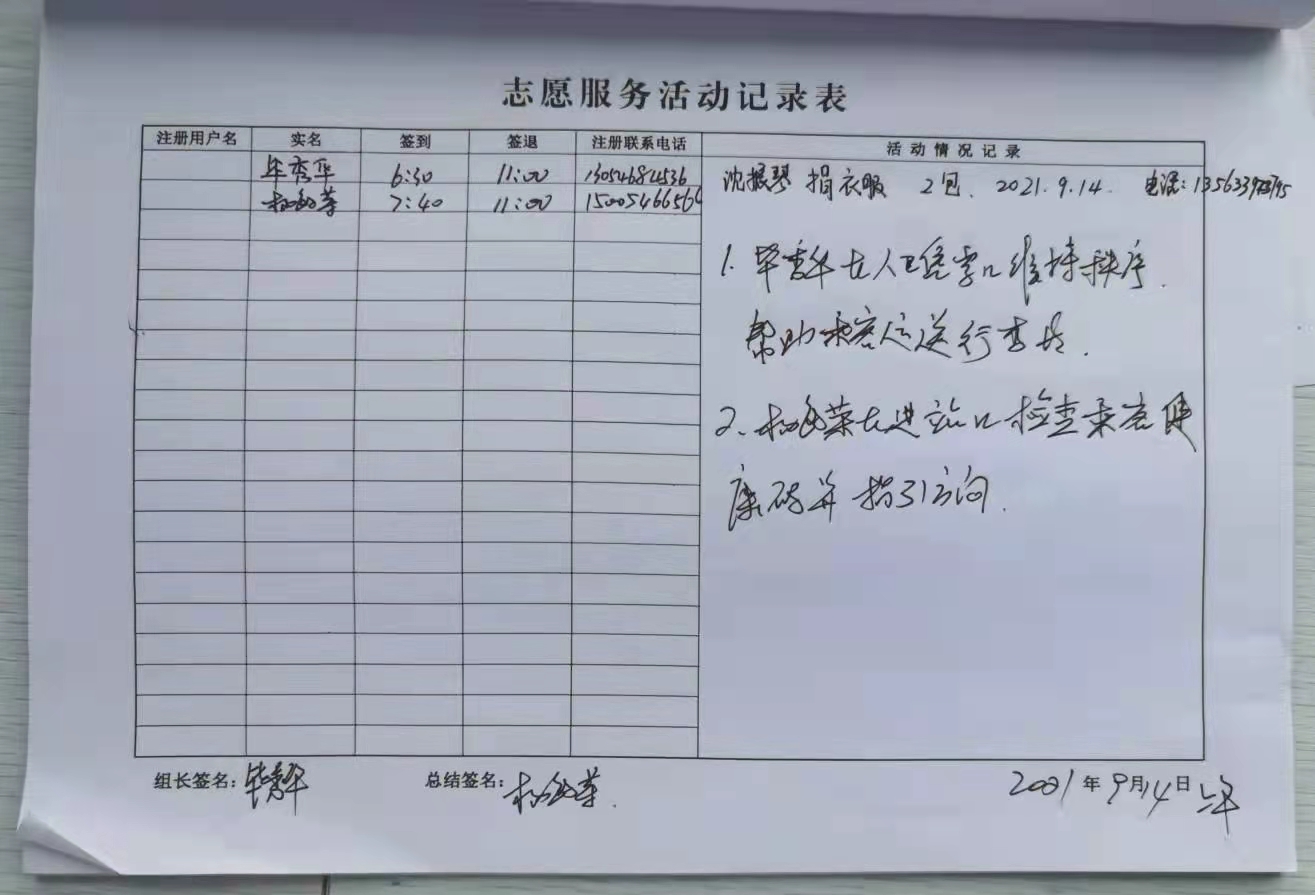 志愿服务活动记录表
注册用户名 实名 签到 签退 注册联系电话 活动情况记录
毕秀华 6:30 11:00 13054684536
7:40 11:00
沈振琴 捐衣服 2包. 2021.9.14. 电话:
1. 毕秀华在人工售票口维持秩序.
帮助乘客运送行李.
2、在进站口检查乘客健
康码并指引方向.
组长签名: 毕秀华 总结签名:
2021年9月14日上午